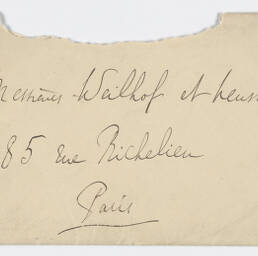 Messieurs Weilhof et
85 rue Richelieu
Paris